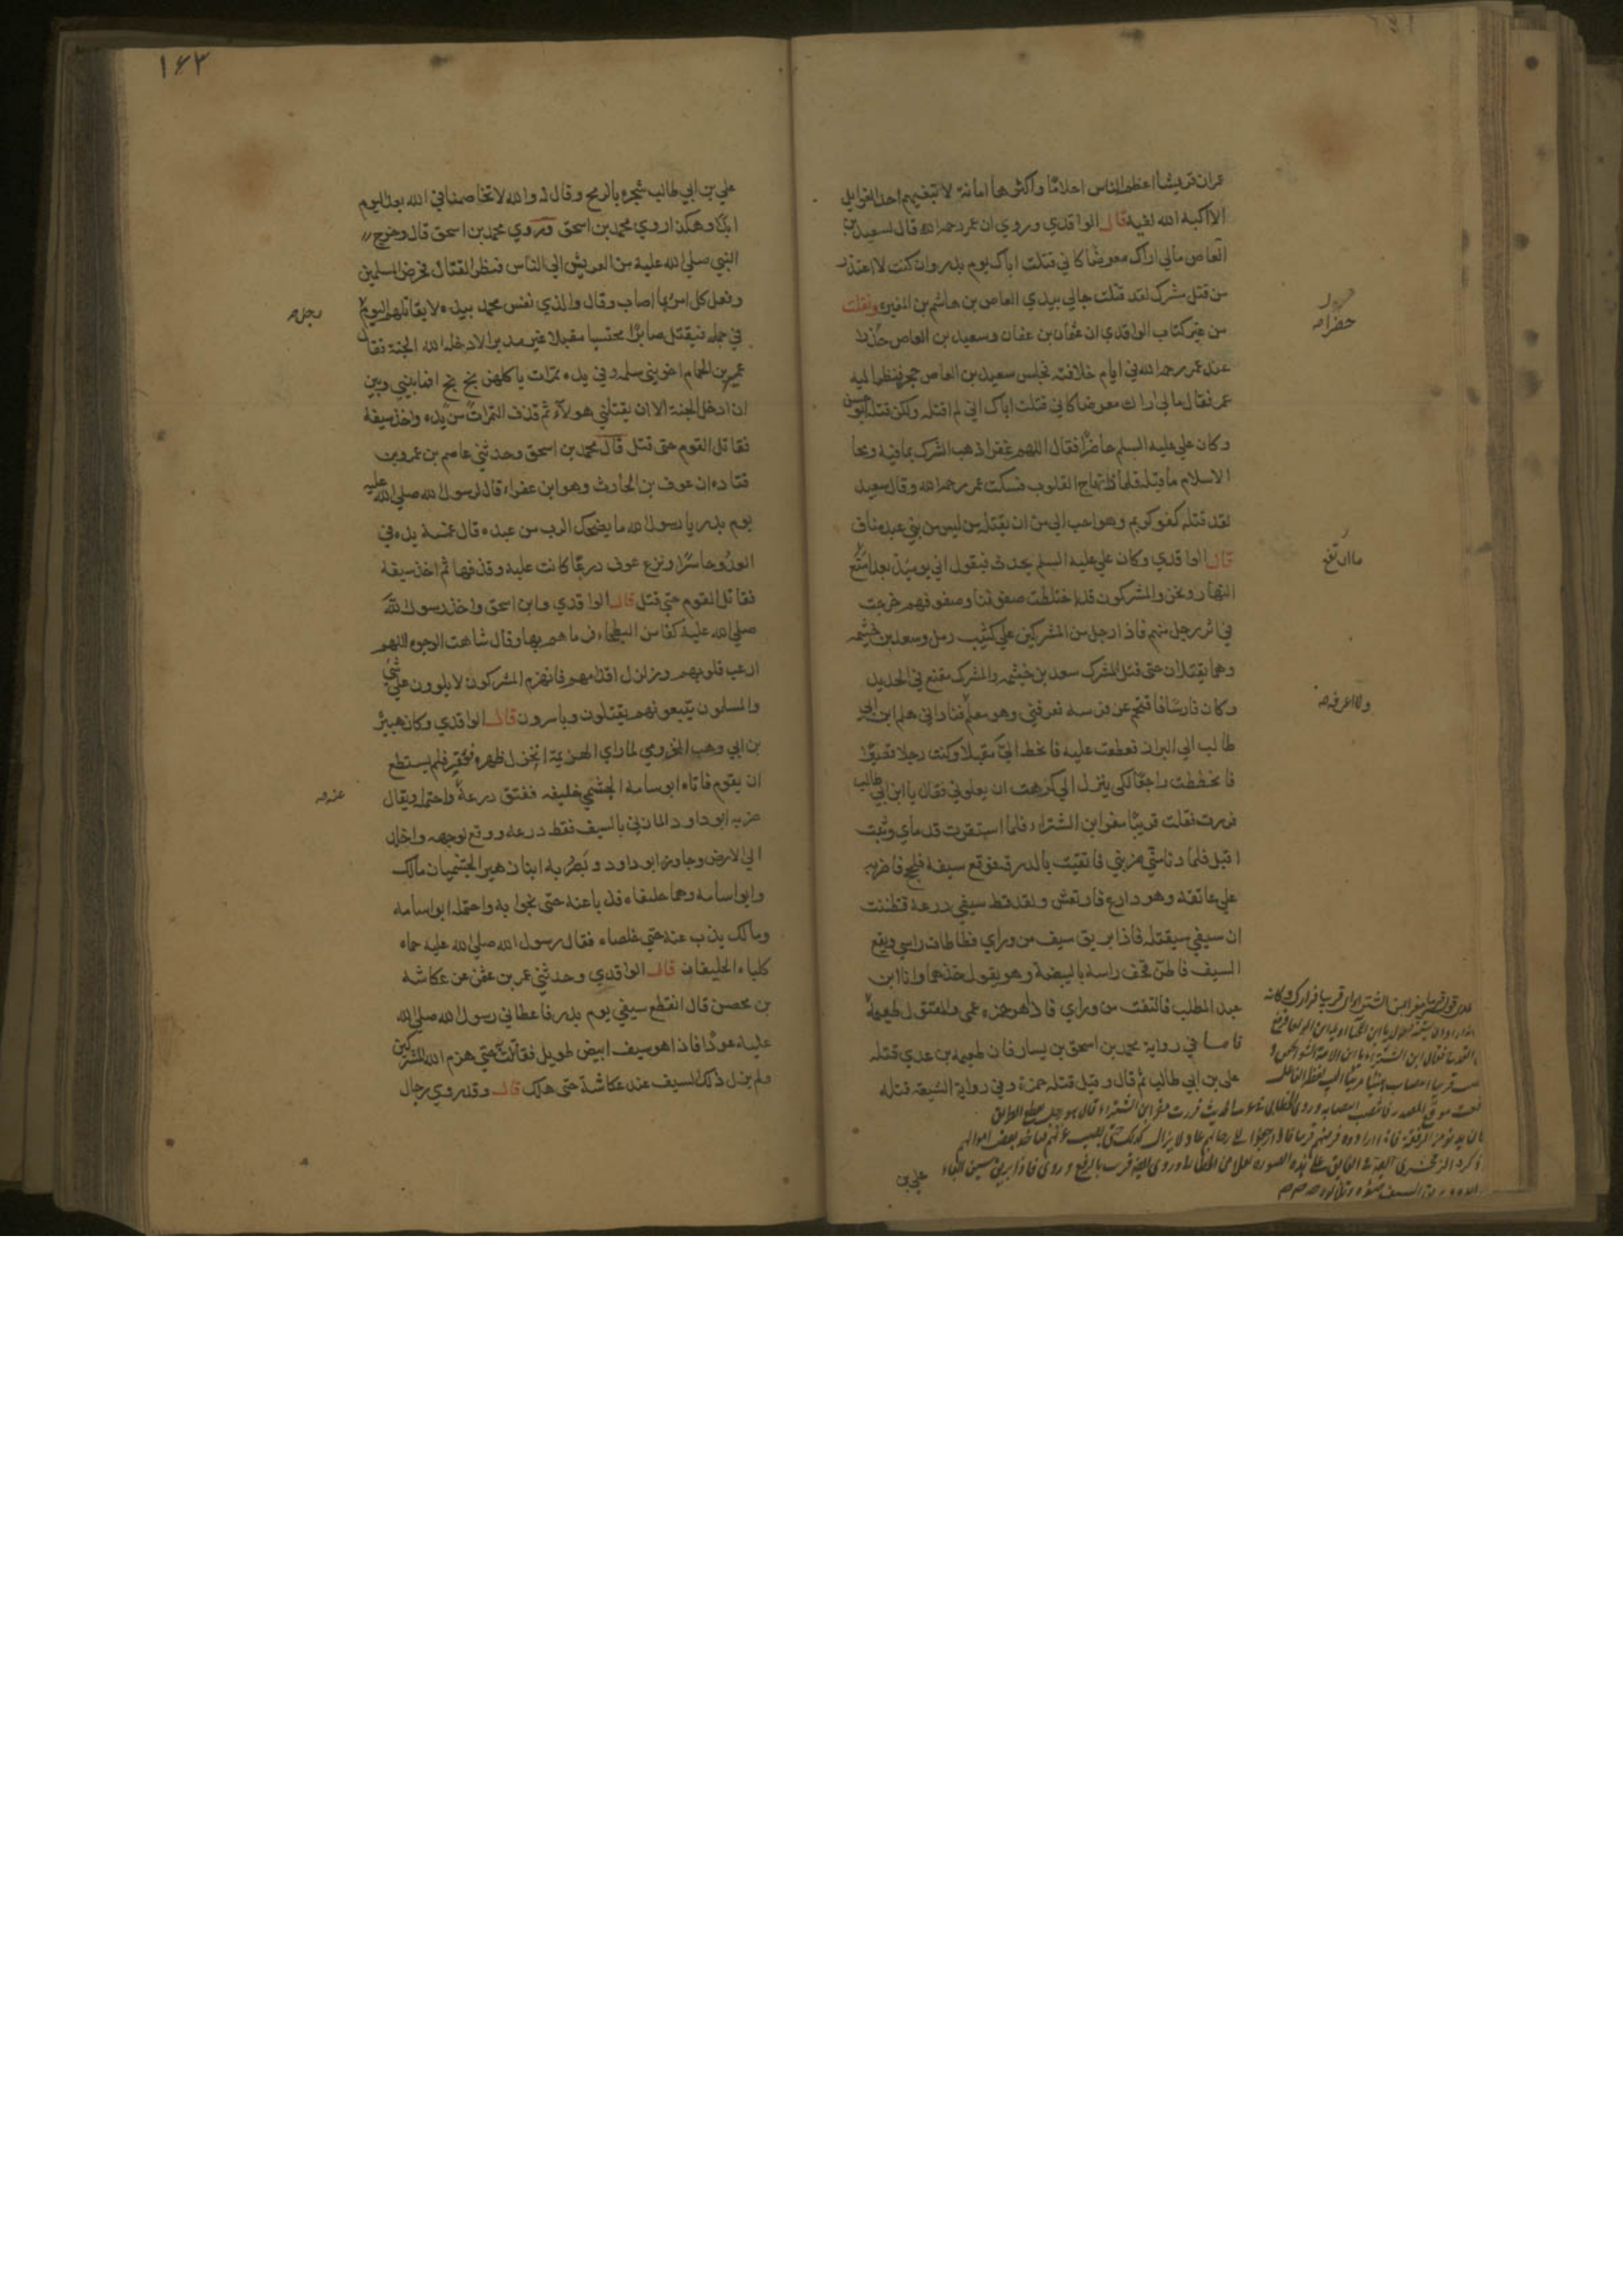 عمر ان قريشا اعظم الناس احلامًا واكثرها امانة لا تبغيهم احد الغوايل
الا اكبه الله لفيه قال الواقدي وروي ان عمر رحمه الله قال لسعيد بن
العاص مالي اراك معرضًا كاني قتلت اباك يوم بدر وان كنت لا اعتذر
من قتل مشرك لقد قتلت خالي بيدي العاص بن هاشم بن المغيرة ونقلت
من غير كتاب الواقدي ان عثمان بن عفان وسعيد بن العاص حضرا
عند عمر رحمه الله في ايام خلافته فجلس سعيد بن العاص حجرة فنظر اليه
عمر فقال مالي اراك معرضا كاني قتلت اباك اني لم اقتله ولكن قتله ابو حسن
وكان علي عليه السلم حاضرًا فقال اللهم غفرا ذهب الشرك بما فيه ومحا
الاسلام ما قبله فلماذا تهاج القلوب فسكت عمر رحمه الله وقال سعيد
لقد قتله كفو كريم وهو احب الي من ان يقتله من ليس من بني عبد مناف
قال الواقدي وكان علي عليه السلم يحدث فيقول اني يومئذ بعد ما متع
النهار ونحن والمشركون قد اختلطت صفوفنا وصفوفهم خرجت
في اثر رجل منهم فاذا رجل من المشركين علي كثيب رمل وسعد بن خيثمه
وهما يقتتلان حتى قتل المشرك سعد بن خيثمه والمشرك مقنع في الحديد
وكان فارسًا فاقتحم عن فرسه فعرفني وهو معلم فناداني هلم ابن ابي
طالب الي البراز فعطفت عليه فانحط الي مقبلا وكنت رجلا قصيرًا
فانحططت راجعًا لكي ينزل الي كرهت ان يعلوني فقال يا ابن ابي طالب
فررت فقلت قريبًا مفر ابن الشتراء فلما استقرت قدماي وثبت
اقبل فلما دنا مني ضربني فاتقيت بالدرقه فوقع سيفه فلحج فاضربه
علي عاتقه وهو دارع فارتعش ولقد قط سيفي درعه فظننت
ان سيفي سيقتله فاذا بريق سيف من وراي فطاطات راسي ويقع
السيف فاطن قحف راسه بالبيضة وهو يقول خذها وانا ابن
عبد المطلب فالتفت من وراي فاذا هو حمزه عمي والمقتول طعيمة
فاما في رواية محمد بن اسحق بن يسار فان طعيمه بن عدي قتله
علي بن ابي طالب ثم قال وقيل قتله حمزة وفي رواية الشيعة قتله
حضرا صح
ما ارتفع
ولا اعرفه صح
علي بن
١٦٣
علي بن ابي طالب شجره بالرمح وقال له والله لا تخاصمنا في الله بعد اليوم
ابدًا وهكذا روي محمد بن اسحق وروي محمد بن اسحق قال وخرج
النبي صلي الله عليه من العريش الي الناس فنظر القتال فحرض المسلمين
ونفل كل امرئ ما اصاب وقال والذي نفس محمد بيده لا يقاتلهم اليوم
في جمله فيقتل صابرًا محتسبا مقبلا غير مدبر الا ادخله الله الجنة فقال
عمير بن الحمام اخو بني سلمه وفي يده تمرات ياكلهن بخ بخ افما بيني وبين
ان ادخل الجنة الا ان يقتلني هولاء ثم قذف التمرات من يده واخذ سيفه
فقاتل القوم حتى قتل قال محمد بن اسحق وحدثني عاصم بن عمرو بن
قتاده ان عوف بن الحارث وهو ابن عفراء قال لرسول الله صلي الله عليه
يوم بدر يا رسول الله ما يضحك الرب من عبده قال غمسة يده في
العدو حاسرًا ونزع عوف درعًا كانت عليه وقذفها ثم اخذ سيفه
فقاتل القوم حتى قتل قال الواقدي وابن اسحق واخذ رسول الله
صلي الله عليه كفا من البطحاء فرماهم بها وقال شاهت الوجوه اللهم
ارعب قلوبهم وزلزل اقدامهم فانهزم المشركون لا يلوون علي شئ
والمسلمون يتبعونهم يقتلون وياسرون قال الواقدي وكان هبيرة
بن ابي وهب المخزومي لما راي الهزيمة انخزل ظهره فعقر فلم يستطع
ان يقوم فاتاه ابو سامه الجشمي حليفه ففتق درعه واحتمله ويقال
ضربه ابو داود المازني بالسيف فقط درعه ووقع لوجهه واخلد
الي الارض وجاوزه ابو داود وبصر به ابنا زهير الجشميان مالك
وابو اسامه وهما حليفاه فذبا عنه حتى نجوا به واحتمله ابو اسامه
ومالك يذب عنه حتى خلصاه فقال رسول الله صلي الله عليه حماه
كلباه الحليفان قال الواقدي وحدثني عمر بن عثمن عن عكاشه
بن محصن قال انقطع سيفي يوم بدر فاعطاني رسول الله صلي الله
عليه عودًا فاذا هو سيف ابيض طويل فقاتلت به حتى هزم الله المشركين
ولم يزل ذلك السيف عند عكاشة حتى هلك قال وقد روي رجال
رجل صح
عنه صح